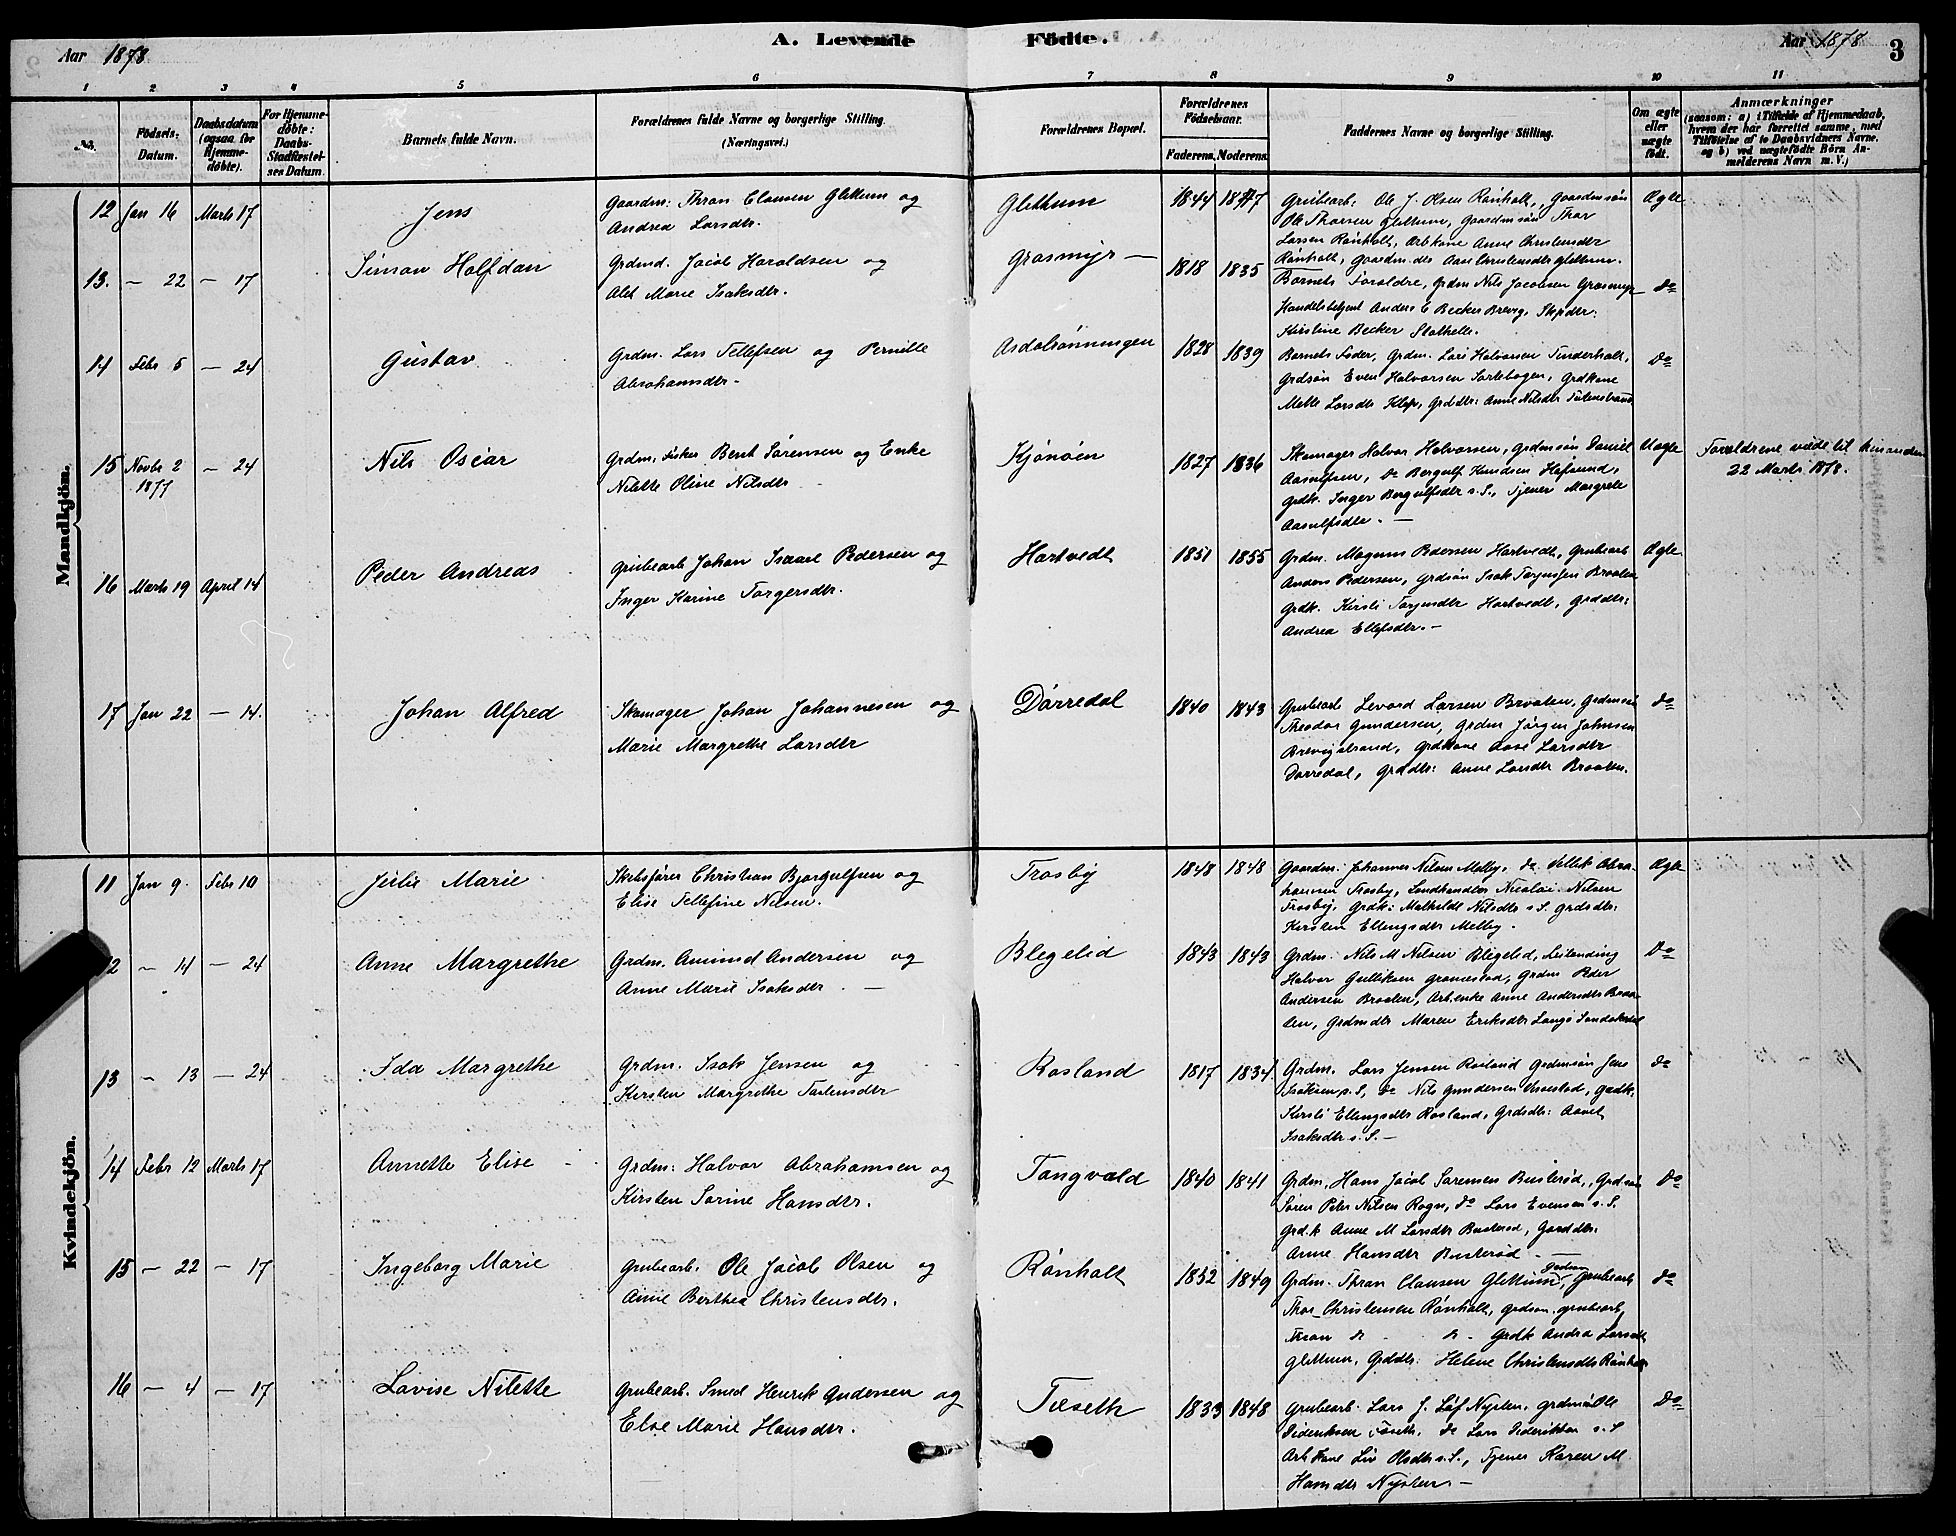 Aar 1878
A. Levende Födte.
Aar 1878
3
1 2 3 4 5 6 7 8 9 10 11
No.
Födsels-Datum.
Daabsdatum (ogsaa for Hjemmedöbte).
For Hjemmedöbte: Daabs-Stadfæstelses Datum.
Barnets fulde Navn.
Forældrenes fulde Navne og borgerlige Stilling. (Næringsvei.)
Forældrenes Bopæl.
Forældrenes Födselsaar.
Faderens. Moderens.
Faddernes Navne og borgerlige Stilling.
Om ægte eller uægte födt.
Anmærkninger
(saasom: a) i Tilfælde af Hjemmedaab, hvem der har forrettet samme, med Tilföielse af to Daabsvidners Navne. og b) ved uægtefödte Börn Anmelderens Navn m. V.)
Mandkjön.
12 Jan 16 Marts 17 Jens
Gaardm: Thron Clausen Glittum og
Andrea Larsdtr.
Glittum 1844 1847
Grubearb. Ole J. Olsen Rönholt, Gaardmsön
Ole Thorsen Glittum, Gaardmsön Thor
Larsen Rönholt, Arbkone Anne Christensdtr
Rönholt, Gaardm.dtr Aase Christensdtr Glittum.
Ægte
13. - 22 - 17 Simon Halfdan
Grdmd. Jacob Haroldsen og
Alet Marie Isaksdtr.
Grasmyr 1818 1835
Barnets Forældre, Grdm Nils Jacobsen Grasmyr
Handelsbetjent Anders E Becker Brevig, Skpdtr:
Kirstine Becker Stathelle.
Do
14 Febr 5 - 24 Gustav
Grdm. Lars Tellefsen og Pernille
Abrahamsdtr.
Asdalsönningen 1828 1839
Barnets Fader, Grdm. Lars Halvorsen Tinderholt,
Grdsön Even Halvorsen Sortebogen, Grdkone
Mette Larsdtr Klep, Grddtr: Anne Nilsdtr
Do
15 Novbr 2 1877 - 24 Nils Oscar
Grdm, Fisker Bent Sörensen og Enke
Nilette Oline Nilsdtr
Kjönöen 1827 1836
Skomager Halvor Halvorsen, Grdmsön Daniel
Aasulfsen, Do Bergulf Knudsen Hafsund,
Grdk. Inger Bergulfsdtr s.S., Tjener Margrete
Aasulfsdtr. -
Uægte
Forældrene viede til hinanden
22 Marts 1878.
16 Marts 19 April 14 Peder Andreas
Grubearb Johan Isaac Pedersen og
Inger Karine Torgersdtr.
Hartvedt 1851 1855
Grdm. Magnus Pedersen Hartvedt, Grubearb
Anders Pedersen, Grdsön Isak Torgersen Braaten
Grdk. Kirsti Torjusdtr Hartvedt, Grddtr:
Andrea Ellefsdtr. -
Ægte
17 Jan 22 - 14. Johan Alfred
Skomager Johan Johannesen og
Marie Margrethe Larsdtr
Dörredal 1840 1843
Grubearb Levord Larsen Braaten, Grdmsön
Theodor Gundersen, Grdm Jörgen Johnsen
Brevigstrand, Grdkone Aase Larsdtr
Dörredal, Grddtr: Anne Larsdtr Braaten.
Do
Kvindekjön.
11 Jan 9. Febr 10 Julie Marie
Skibsfører Christian Bjorgulfsen og
Elise Tellefine Nilsen.
Trosby 1848 1848
Gaardm. Johannes Nilsen Melby, Do Vellik Abra-
hamsen Trosby, Landhandler Nicolai Nilsen
Trosby, Grdk: Mathilde Nilsdtr s.S. Grdsdtr:
Kirsten Ellingsdtr Melby.
Ægte
12 - 14 - 24 Anne Margrethe
Grdm. Amund Andersen og
Anne Marie Isaksdtr. -
Blegelid 1843 1843
Grdm. Nils M Nilsen Blegelid, Leilending
Halvor Gulliksen Grønestad, Grdm Peder
Andersen Braaten, Arb.enke Anne Andersdtr Braa-
ten, Grdmdtr Maren Eriksdtr
Do
13 - 13 - 24 Ida Margrethe
Grdm. Isak Jensen og
Kirsten Margrethe Tarlensdtr
Rosland 1817 1834
Grdm. Lars Jensen Rosland Grdmsön Jens
Isaksen s.S, Do Nils Gundersen, Grdk.
Kirsti Ellingsdtr Rosland, Grdsdtr: Aavet
Isaksdtr s.S. -
Do
14 Febr 12 Marts 17 Annette Elise
Grdm: Halvor Abrahamsen og
Kirsten Sorine Hansdtr.
Tangvald 1840 1841
Grdm. Hans Jacob Sörensen Busteröd, Grdsön
Sören Peter Nilsen Rogn, Do Lars Evensen s.S.
Grd.k Anne M Larsdtr Busteröd, Gaarddtr.
Anne Hansdtr Busteröd -
Do
15 - 22 - 17 Ingeborg Marie
Grubearb. Ole Jacob Olsen og
Anne Berthea Christensdtr.
Rönholt 1852 1849
Grdm. Thron Clausen Glittum, Grubearb
Thor Christensen Rönholt, Grdsøn. Grubearb
Thron do - do - Grdk Andrea Larsdtr
Glittum, Grddtr. Helene Christensdtr Rönholt
Do
16 - 4 - 17 Lovise Nilette
Grubearb. Smed Henrik Andersen og
Else Marie Hansdtr.
Tæseth 1833 1848
Grubearb. Lars J. Löf Nysten, Grdmsön Ole
Dideriksen Töseth, Do Lars Dideriksen s.S
Arb.kone Liv Olsdtr s.S., Tjener Karen M.
Hansdtr Nysten. -
Do